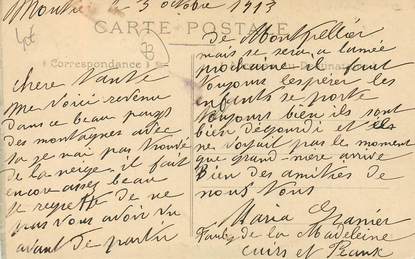 le 3 octobre 1913
CARTE POSTALE
Correspondance
chere Tante
me voici revenu
dans ce beau pays
des montagnes avec
la je nai pas trouvé
de la neige, il fait
encore assez beau
je regrette de ne
pas vous avoir vu
avant de partir
de Montpellier
mais se sera a lanée
prochaine il faut
toujours lespérer les
enfants se porte
toujours bien ils sont
bien dégourdi et ils
ne voyait pas le moment
que grand-mère arrive
Bien des amitiés de
nous tous
Maria
de la Madeleine
Cuirs et